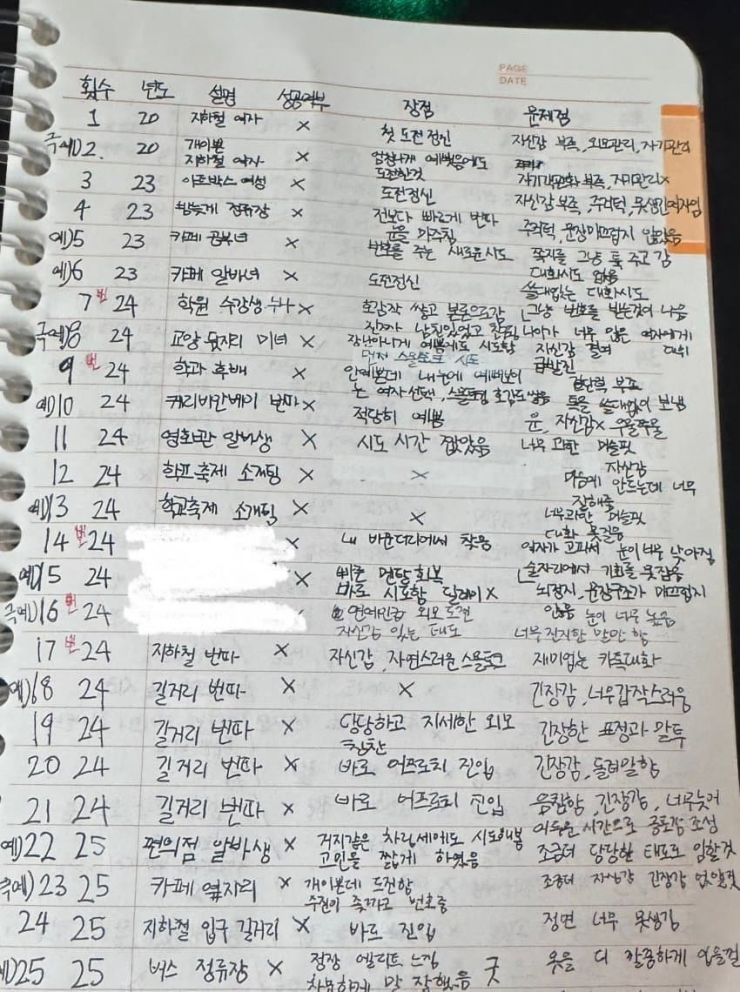 PAGE
DATE
횟수 년도 설명 성공여부 장점 문제점
1 20 지하철 여자 × 첫 도전정신 자신감 부족, 외모관리, 자기관리
극예)2. 20 개이쁜 지하철 여자 × 엄청나게 예뻤음에도 도전한것 자기객관화 부족, 자기관리×
3 23 아트박스 여성 × 도전정신 자신감 부족, 주저턱, 못생긴여자임
4 23 정류장 × 전보다 빠르게 번따 눈을 마주침 주저턱, 문장미끄럽지 않았음
예)5 23 카페 공부녀 × 번호를 주는 새로운시도 쪽지를 그냥 툭 주고 감
예)6 23 카페 알바녀 × 도전정신 대화시도 없음 쓸데없는 대화시도
7 번 24 학원 수강생 누나 × 호감작 쌓고 그냥 번호를 받는것이 나음
극예)8 24 교양 옆자리 미녀 × 예쁨에도 시도함 나이가 너무 많은 여자에게 자신감 결여
9 번 24 학과 후배 × 먼저 스몰토크 시도 급발진
예)10 24 캐리비안베이 번따 × 적당히 예쁨 톡을 쓸데없이 보냄
11 24 영화관 알바생 × 시도 시간 짧았음 눈, 자신감× 우물쭈물
12 24 학교축제 소개팅 × × 너무 과한 머슬핏 자신감
예)13 24 학교축제 소개팅 × × 마음에 안드는데 너무 잘해줌
14 번 24 × 내 바운더리에서 찾음 너무과한 머슬핏 대화 못질음
예)15 24 × 빠른 멘탈회복 바로 시도함 딜레이× 여자가 고파서 눈이 너무 낮아짐 술자리에서 기회를 못잡음
극예)16 번 24 연예인급 외모 도전 자신감 있는 태도 뇌정지, 문장구조가 매끄럽지 않음 눈이 너무 높음 너무 진지한 말만 함
17 번 24 지하철 번따 × 자신감 자연스러운 스몰토크 재미없는 카톡대화
예)18 24 길거리 번따 × × 긴장감, 너무갑작스러움
19 24 길거리 번따 × 당당하고 자세한 외모 칭찬 긴장한 표정과 말투
20 24 길거리 번따 × 바로 어프로치 진입 긴장감, 돌려말함
21 24 길거리 번따 × 바로 어프로치 진입 음침함, 긴장감, 너무늦어 어두운 시간으로 공포감 조성
예)22 25 편의점 알바생 × 거지같은 차림새에도 시도해봄 고민을 짧게 하였음 조금더 당당한 태도로 임할것
극예)23 25 카페 옆자리 × 개이쁜데 도전함 조금더 자신감 긴장감 없앨것
24 25 지하철 입구 길거리 × 바로 진입 정면 너무 못생김
예)25 25 버스 정류장 × 정장 엘리트 느낌 차분하게 말 잘했음 굿 옷을 더 깔끔하게 입을걸